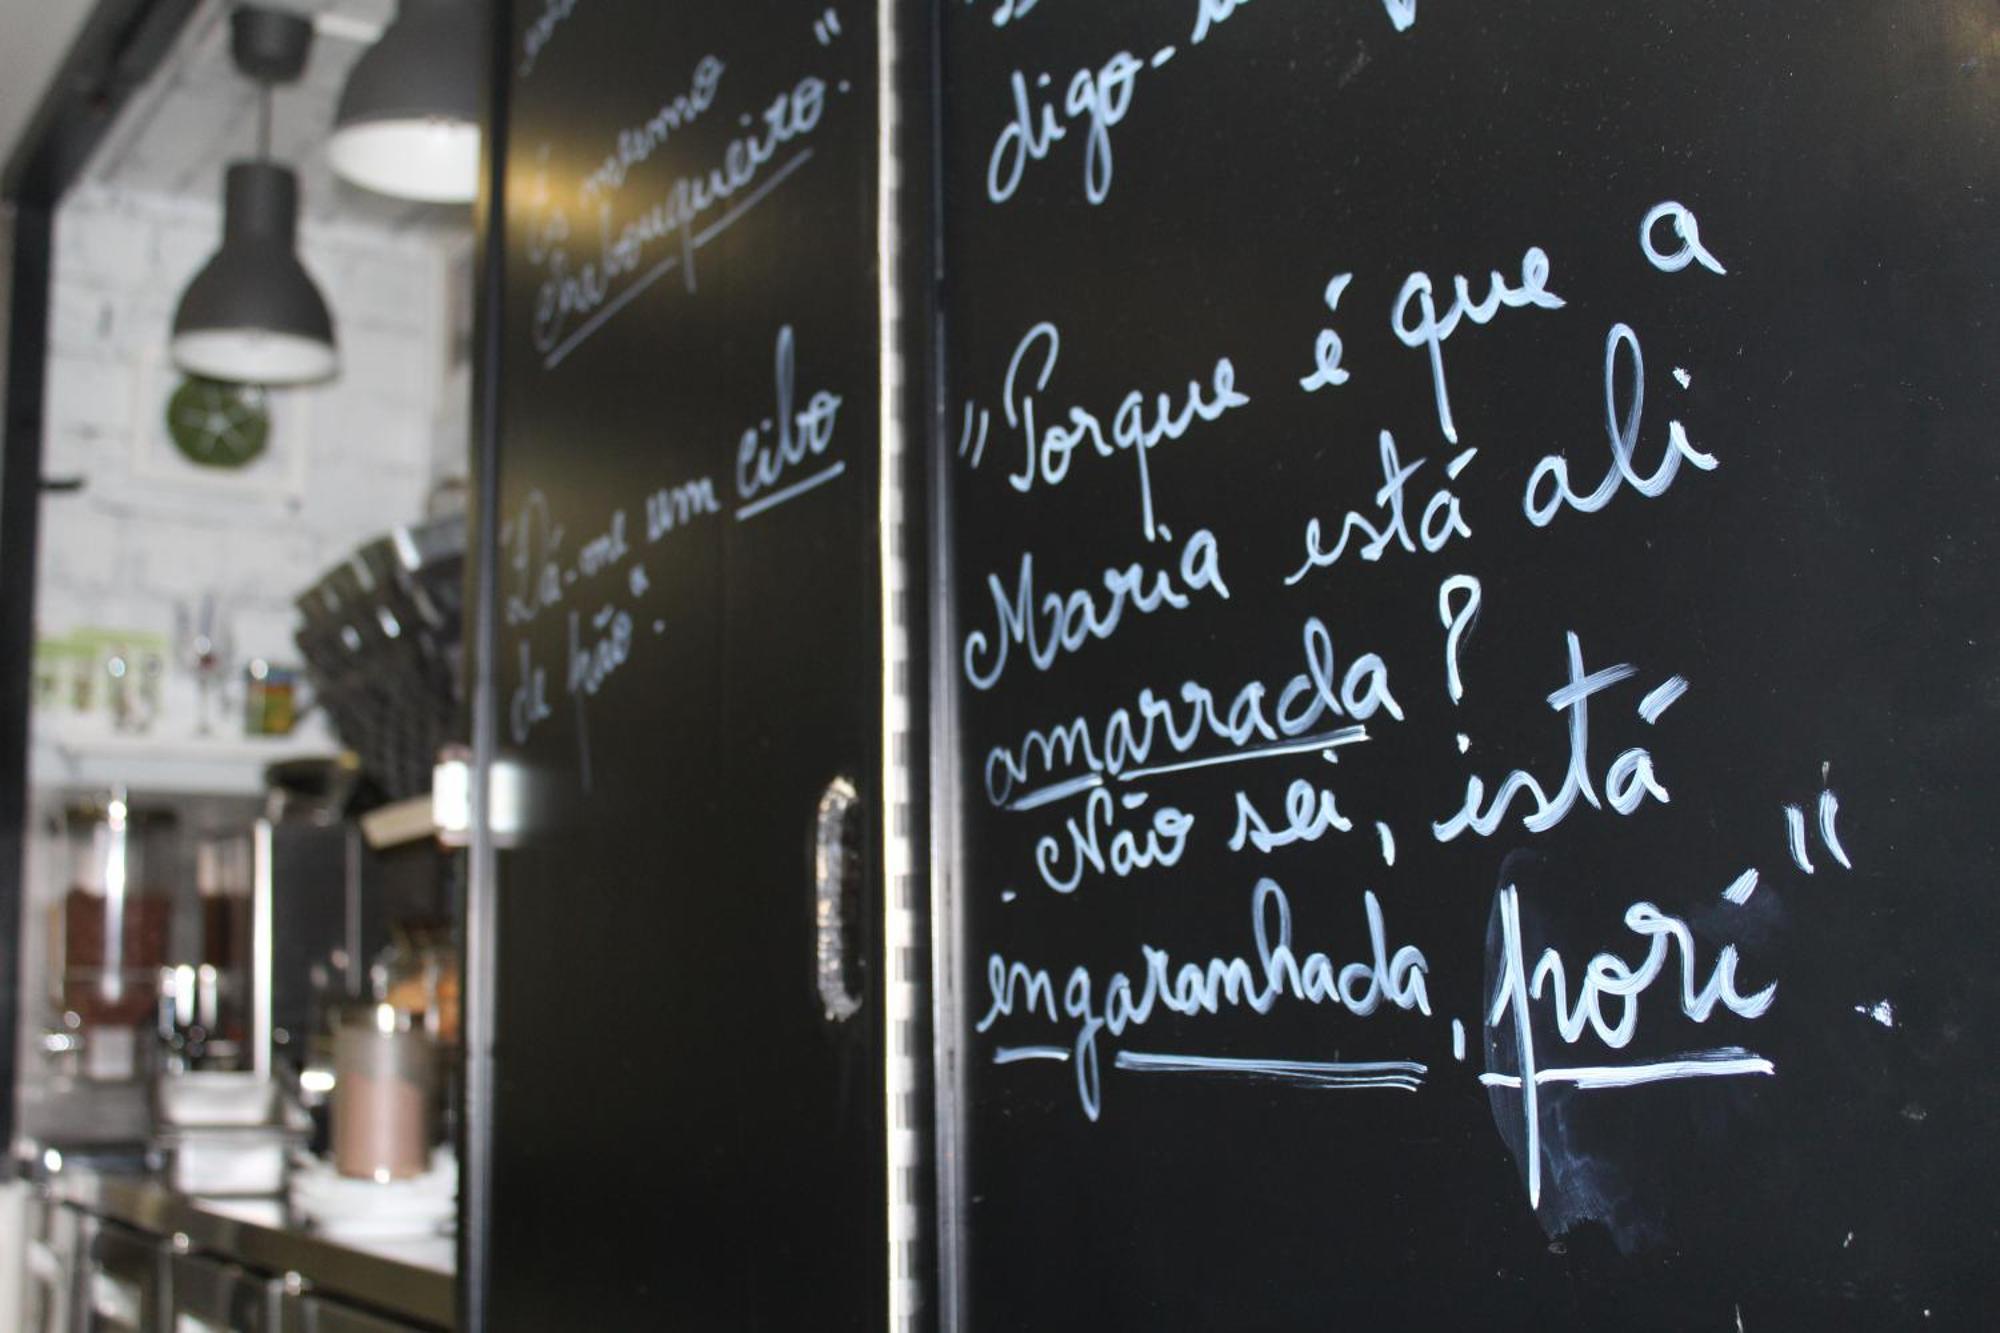 És mesmo
chabouqueiro."
"Dá-me um cibo
de pão".
digo-
"Porque é que a
Maria está ali
amarrada?
- Não sei, está
engaranhada, pori".